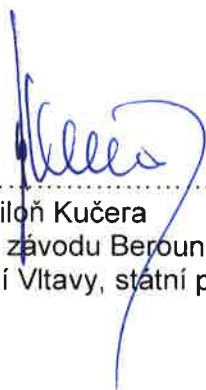 iloň Kučera
závodu Beroun
í Vltavy, státní p